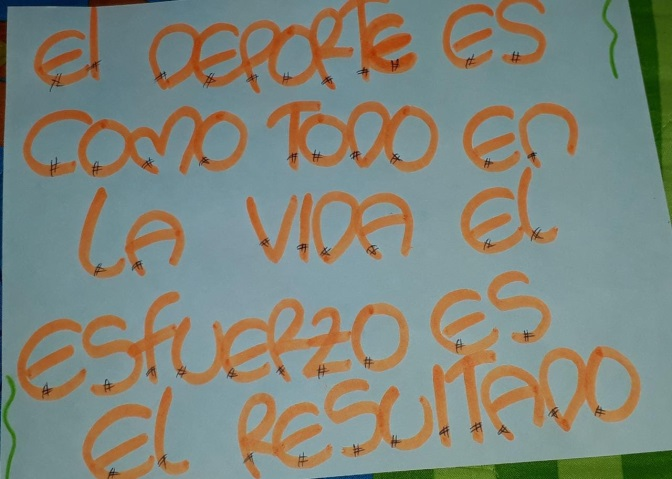 El DEPORTE ES
COMO TODO En
LA VIDA EL
ESfUERZO ES
EL RESULTADO